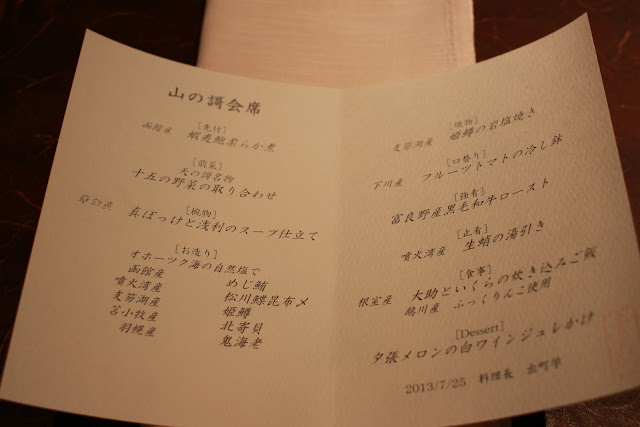 山の謌会席
[先付]
函館産 蝦夷鮑柔らか煮
[前菜]
天の謌名物
十五の野菜の取り合わせ
[椀物]
真ほっけと浅利のスープ仕立て
[お造り]
オホーツク海の自然塩で
函館産 めじ鮪
噴火湾産 松川鰈昆布〆
支笏湖産 姫鱒
苫小牧産 北寄貝
羽幌産 鬼海老
[焼物]
支笏湖産 姫鱒の岩塩焼き
[口替り]
下川産 フルーツトマトの冷し鉢
[強肴]
富良野産黒毛和牛ロースト
[止肴]
噴火湾産 生蛸の湯引き
[食事]
根室産 大助といくらの炊き込みご飯
鵡川産 ふっくりんこ使用
[Dessert]
夕張メロンの白ワインジュレかけ
2013/7/25 料理長